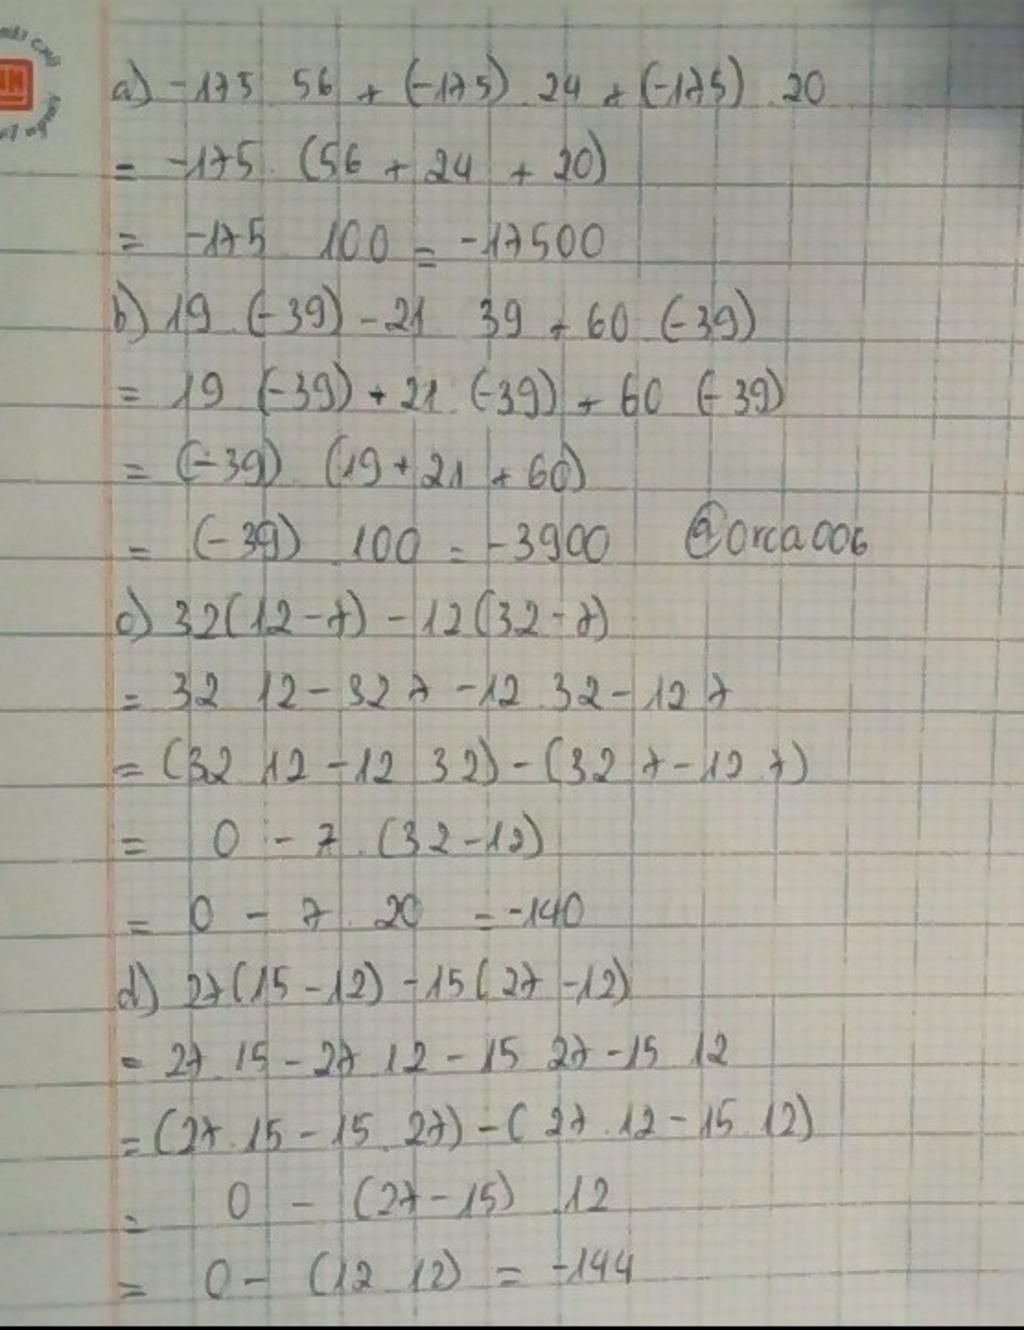 a) -175 56 + (-175) 24 + (-175) 20
= -175. (56 + 24 + 20)
= -175 100 = -17500
b) 19 (-39) - 21 39 + 60 (-39)
= 19 (-39) + 21 (-39) + 60 (-39)
= (-39) (19 + 21 + 60)
= (-39) 100 = -3900 @orca006
c) 32(12-7) - 12(32-7)
= 32 12 - 32 7 - 12 32 - 12 7
= (32 12 - 12 32) - (32 7 - 12 7)
= 0 - 7. (32-12)
= 0 - 7. 20 = -140
d) 27(15-12) - 15(27-12)
= 27 15 - 27 12 - 15 27 - 15 12
= (27 15 - 15 27) - (27 12 - 15 12)
= 0 - (27-15) 12
= 0 - (12 12) = -144